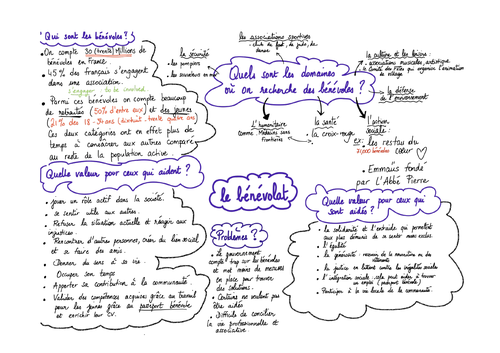 Qui sont les bénévoles ?
On compte 30 (trente) Millions de
bénévoles en France.
45% des français s'engagent
dans une association.
s'engager : to be involved
Parmi ces bénévoles on compte beaucoup
de retraités (50% d'entre eux) et des jeunes
(21% des 18-30 ans
Ces deux catégories ont en effet plus de
temps à consacrer aux autres comparé
au reste de la population active.
Quelle valeur pour ceux qui aident ?
jouer un rôle actif dans la société.
se sentir utile aux autres
Refuser la situation actuelle et réagir aux
injustices
Rencontrer d'autres personnes, créer du lien social
et se faire des amis.
Donner du sens à sa vie
Occuper son temps
Apporter sa contribution à la communauté.
Valider des compétences acquises grâce au travail
pour les jeunes grâce au passeport bénévole
et enrichir leur CV.
le bénévolat
Problèmes ?
Le gouvernement
compte trop sur les bénévoles
et met moins de mesures
en place pour trouver
des solutions.
Certains ne veulent pas
être aidés
Difficile de concilier
la vie professionnelle et
associative
Quels sont les domaines
où on recherche des bénévoles ?
les associations sportives
club de foot, de judo, de
danse
la sécurité
les pompiers
les sauveteurs en mer
la culture et les loisirs
associations musicales, artistiques
le Comité des Fêtes qui organise l'animation
du village
la défense
de l'environnement
L'humanitaire
comme Médecins sans
Frontières
la santé
la croix-rouge
l'action
sociale :
ex : les restau du
coeur
bénévoles
Emmaüs fondé
par L'Abbé Pierre
Quelle valeur pour ceux qui
sont aidés ?
la solidarité et l'entraide qui permettent
aux plus démunis de se sentir moins exclus
l'égalité
la générosité : recevoir de la nourriture ou des
vêtements
la justice en luttant contre les inégalités sociales
l'intégration sociale
Participer à la vie locale de la communauté.